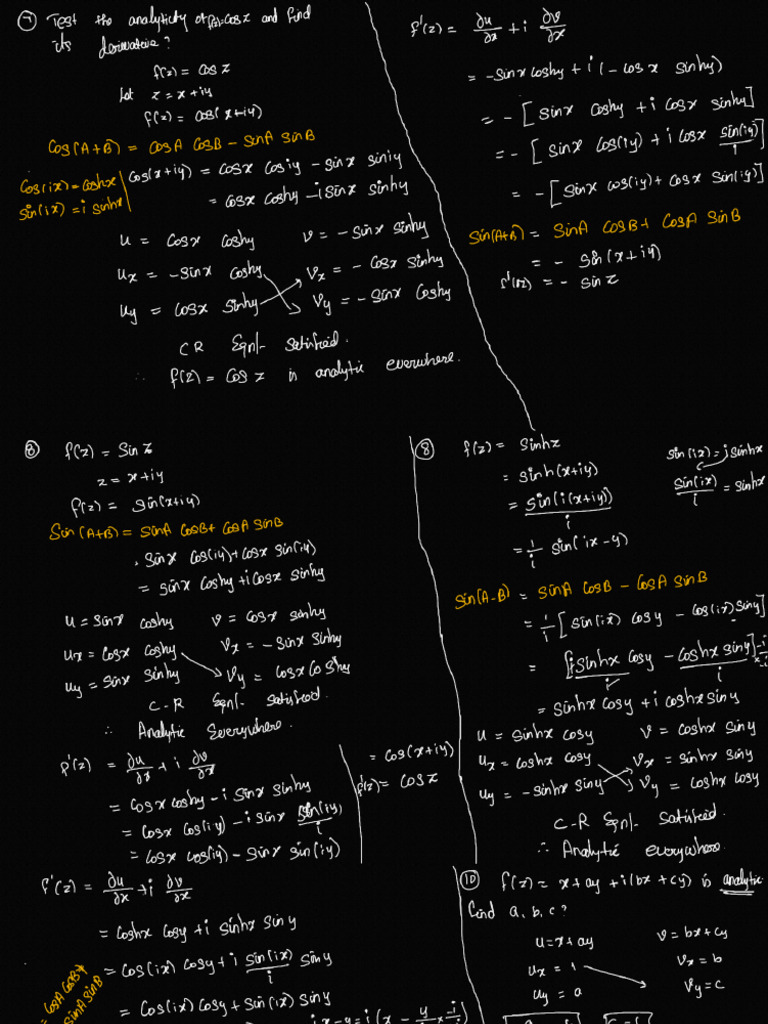 7 Test the analyticity of f(z)=cos z and find
its derivative?
f(z) = cos z
Let z = x+iy
f(z) = cos(x+iy)
Cos(A+B) = cosA cosB - sinA sinB
Cos(ix)=coshx
sin(ix)=i sinhx
Cos(x+iy) = cosx cosiy - sinx siniy
= cosx coshy - i sinx sinhy
u = cosx coshy v = - sinx sinhy
ux = -sinx coshy vx = - cosx sinhy
uy = cosx sinhy vy = - sinx coshy
CR Eqn/- satisfied.
∴ f(z) = cos z is analytic everywhere.
f'(z) = ∂u/∂x + i ∂v/∂x
= -sinx coshy + i (-cosx sinhy)
= - [sinx coshy + i cosx sinhy]
= - [sinx cos(iy) + i cosx sin(iy)/i]
= - [sinx cos(iy) + cosx sin(iy)]
Sin(A+B) = sinA cosB + cosA sinB
= - sin(x+iy)
f'(z) = - sin z
8 f(z) = sin z
z = x+iy
f(z) = sin(x+iy)
Sin(A+B) = sinA cosB + cosA sinB
= sinx cos(iy) + cosx sin(iy)
= sinx coshy + i cosx sinhy
u = sinx coshy v = cosx sinhy
ux = cosx coshy vx = - sinx sinhy
uy = sinx sinhy vy = cosx coshy
C-R Eqn/- satisfied.
∴ Analytic Everywhere.
f'(z) = ∂u/∂x + i ∂v/∂x
= cosx coshy - i sinx sinhy
= cosx cos(iy) - i sinx sin(iy)/i
= cosx cos(iy) - sinx sin(iy)
= cos(x+iy)
f'(z) = cos z
8 f(z) = sinhz
= sinh(x+iy)
= sin(i(x+iy))/i
= 1/i sin(ix-y)
sin(ix) = i sinhx
sin(ix)/i = sinhx
sin(A-B) = sinA cosB - cosA sinB
= 1/i [sin(ix) cosy - cos(ix) siny]
= [i sinhx cosy/i - coshx siny/i] x -i/-i
= sinhx cosy + i coshx siny
u = sinhx cosy v = coshx siny
ux = coshx cosy vx = sinhx siny
uy = - sinhx siny vy = coshx cosy
C-R Eqn/- Satisfied.
∴ Analytic everywhere.
f'(z) = ∂u/∂x + i ∂v/∂x
= coshx cosy + i sinhx siny
= cos(ix) cosy + i sin(ix)/i siny
= cos(ix) cosy + sin(ix) siny
cosA cosB +
sinA sinB
10 f(z) = x+ay+i(bx+cy) is analytic
find a, b, c?
u=x+ay v = bx+cy
ux = 1 vx = b
uy = a vy = c